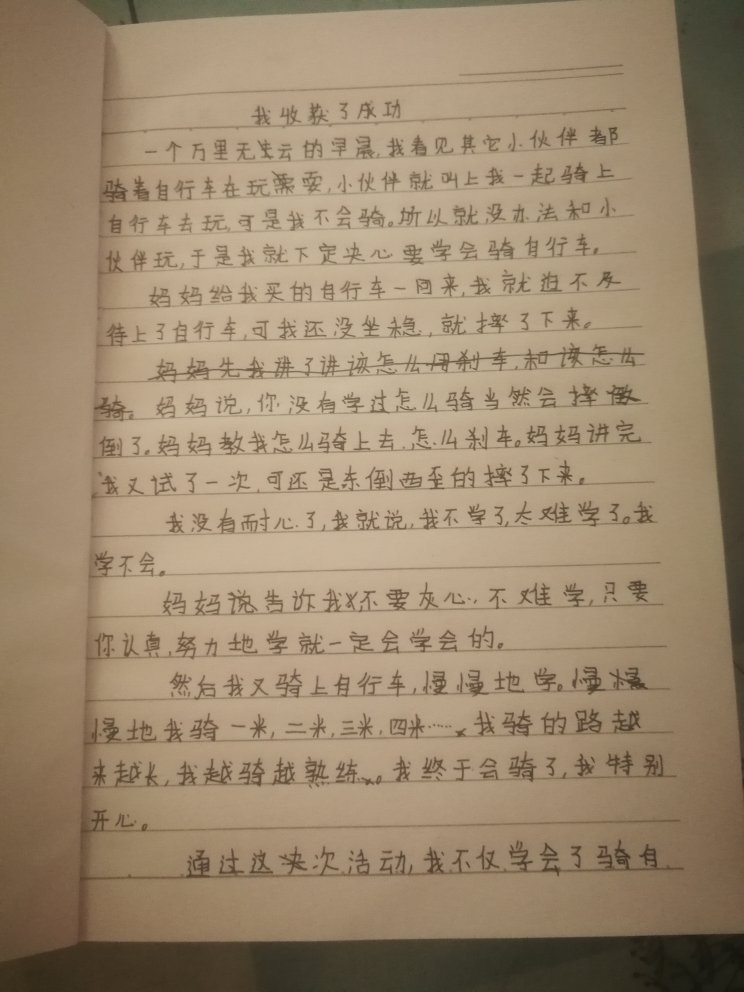 我收获了成功
一个万里无云的早晨,我看见其它小伙伴都
骑着自行车在玩耍,小伙伴就叫上我一起骑上
自行车去玩,可是我不会骑。所以就没办法和小
伙伴玩,于是我就下定决心要学会骑自行车。
妈妈给我买的自行车一回来,我就迫不及
待上了自行车,可我还没坐稳,就摔了下来。
妈妈先我讲了讲该怎么用刹车,和该怎么
骑。妈妈说,你没有学过怎么骑当然会摔
倒了。妈妈教我怎么骑上去,怎么刹车。妈妈讲完
我又试了一次,可还是东倒西歪的摔了下来。
我没有耐心了,我就说,我不学了,太难学了。我
学不会。
妈妈告诉我不要灰心,不难学,只要
你认真,努力地学就一定会学会的。
然后我又骑上自行车,慢慢地学。慢
慢地我骑一米,二米,三米,四米……我骑的路越
来越长,我越骑越熟练。我终于会骑了,我特别
开心。
通过这次活动,我不仅学会了骑自